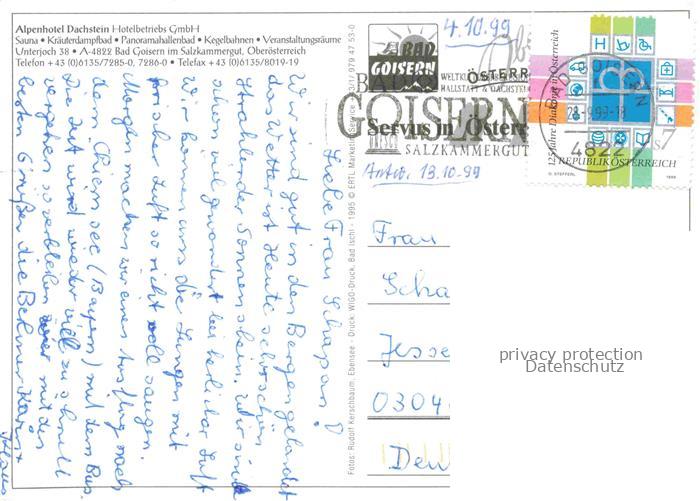 Alpenhotel Dachstein Hotelbetriebs GmbH
Sauna • Kräuterdampfbad • Panoramahallenbad • Kegelbahnen • Veranstaltungsräume
Unterjoch 38 • A-4822 Bad Goisern im Salzkammergut, Oberösterreich
Telefon +43 (0)6135/7285-0, 7286-0 • Telefax +43 (0)6135/8019-19
Liebe Frau
Wir sind gut in den Bergen gelandet
das Wetter ist heute schön
Sonnenschein. Wir sind
schon viel gewandert bei herrlicher Luft
Wir können uns die Lungen mit
frischer Luft so richtig voll saugen.
Morgen machen wir einen Ausflug nach
dem Chiemsee (Bayern) mit dem Bus
Die Zeit wird wieder viel zu schnell
vergehen so verbleiben mit den
besten Grüßen die
Fotos: Rudolf Kerschbaum, Ebensee - Druck: WIGO-Druck, Bad Ischl - 1995 © ERTL Marketing Service
4.10.99
BAD
GOISERN
HALLSTATT
ÖSTERR
GOISERN
Servus in Österr
SALZKAMMERGUT
Antw. 13.10.99
125 Jahre Diakonie in Österreich
4822
REPUBLIK ÖSTERREICH
1999
Frau
Scha
Jesse
0304
Deu
privacy protection
Datenschutz